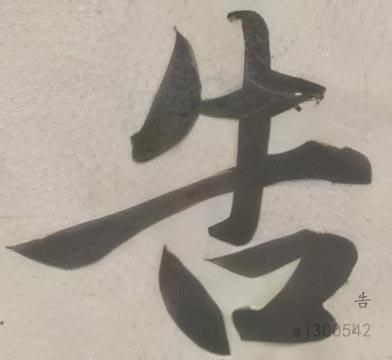 告
告
aj300542